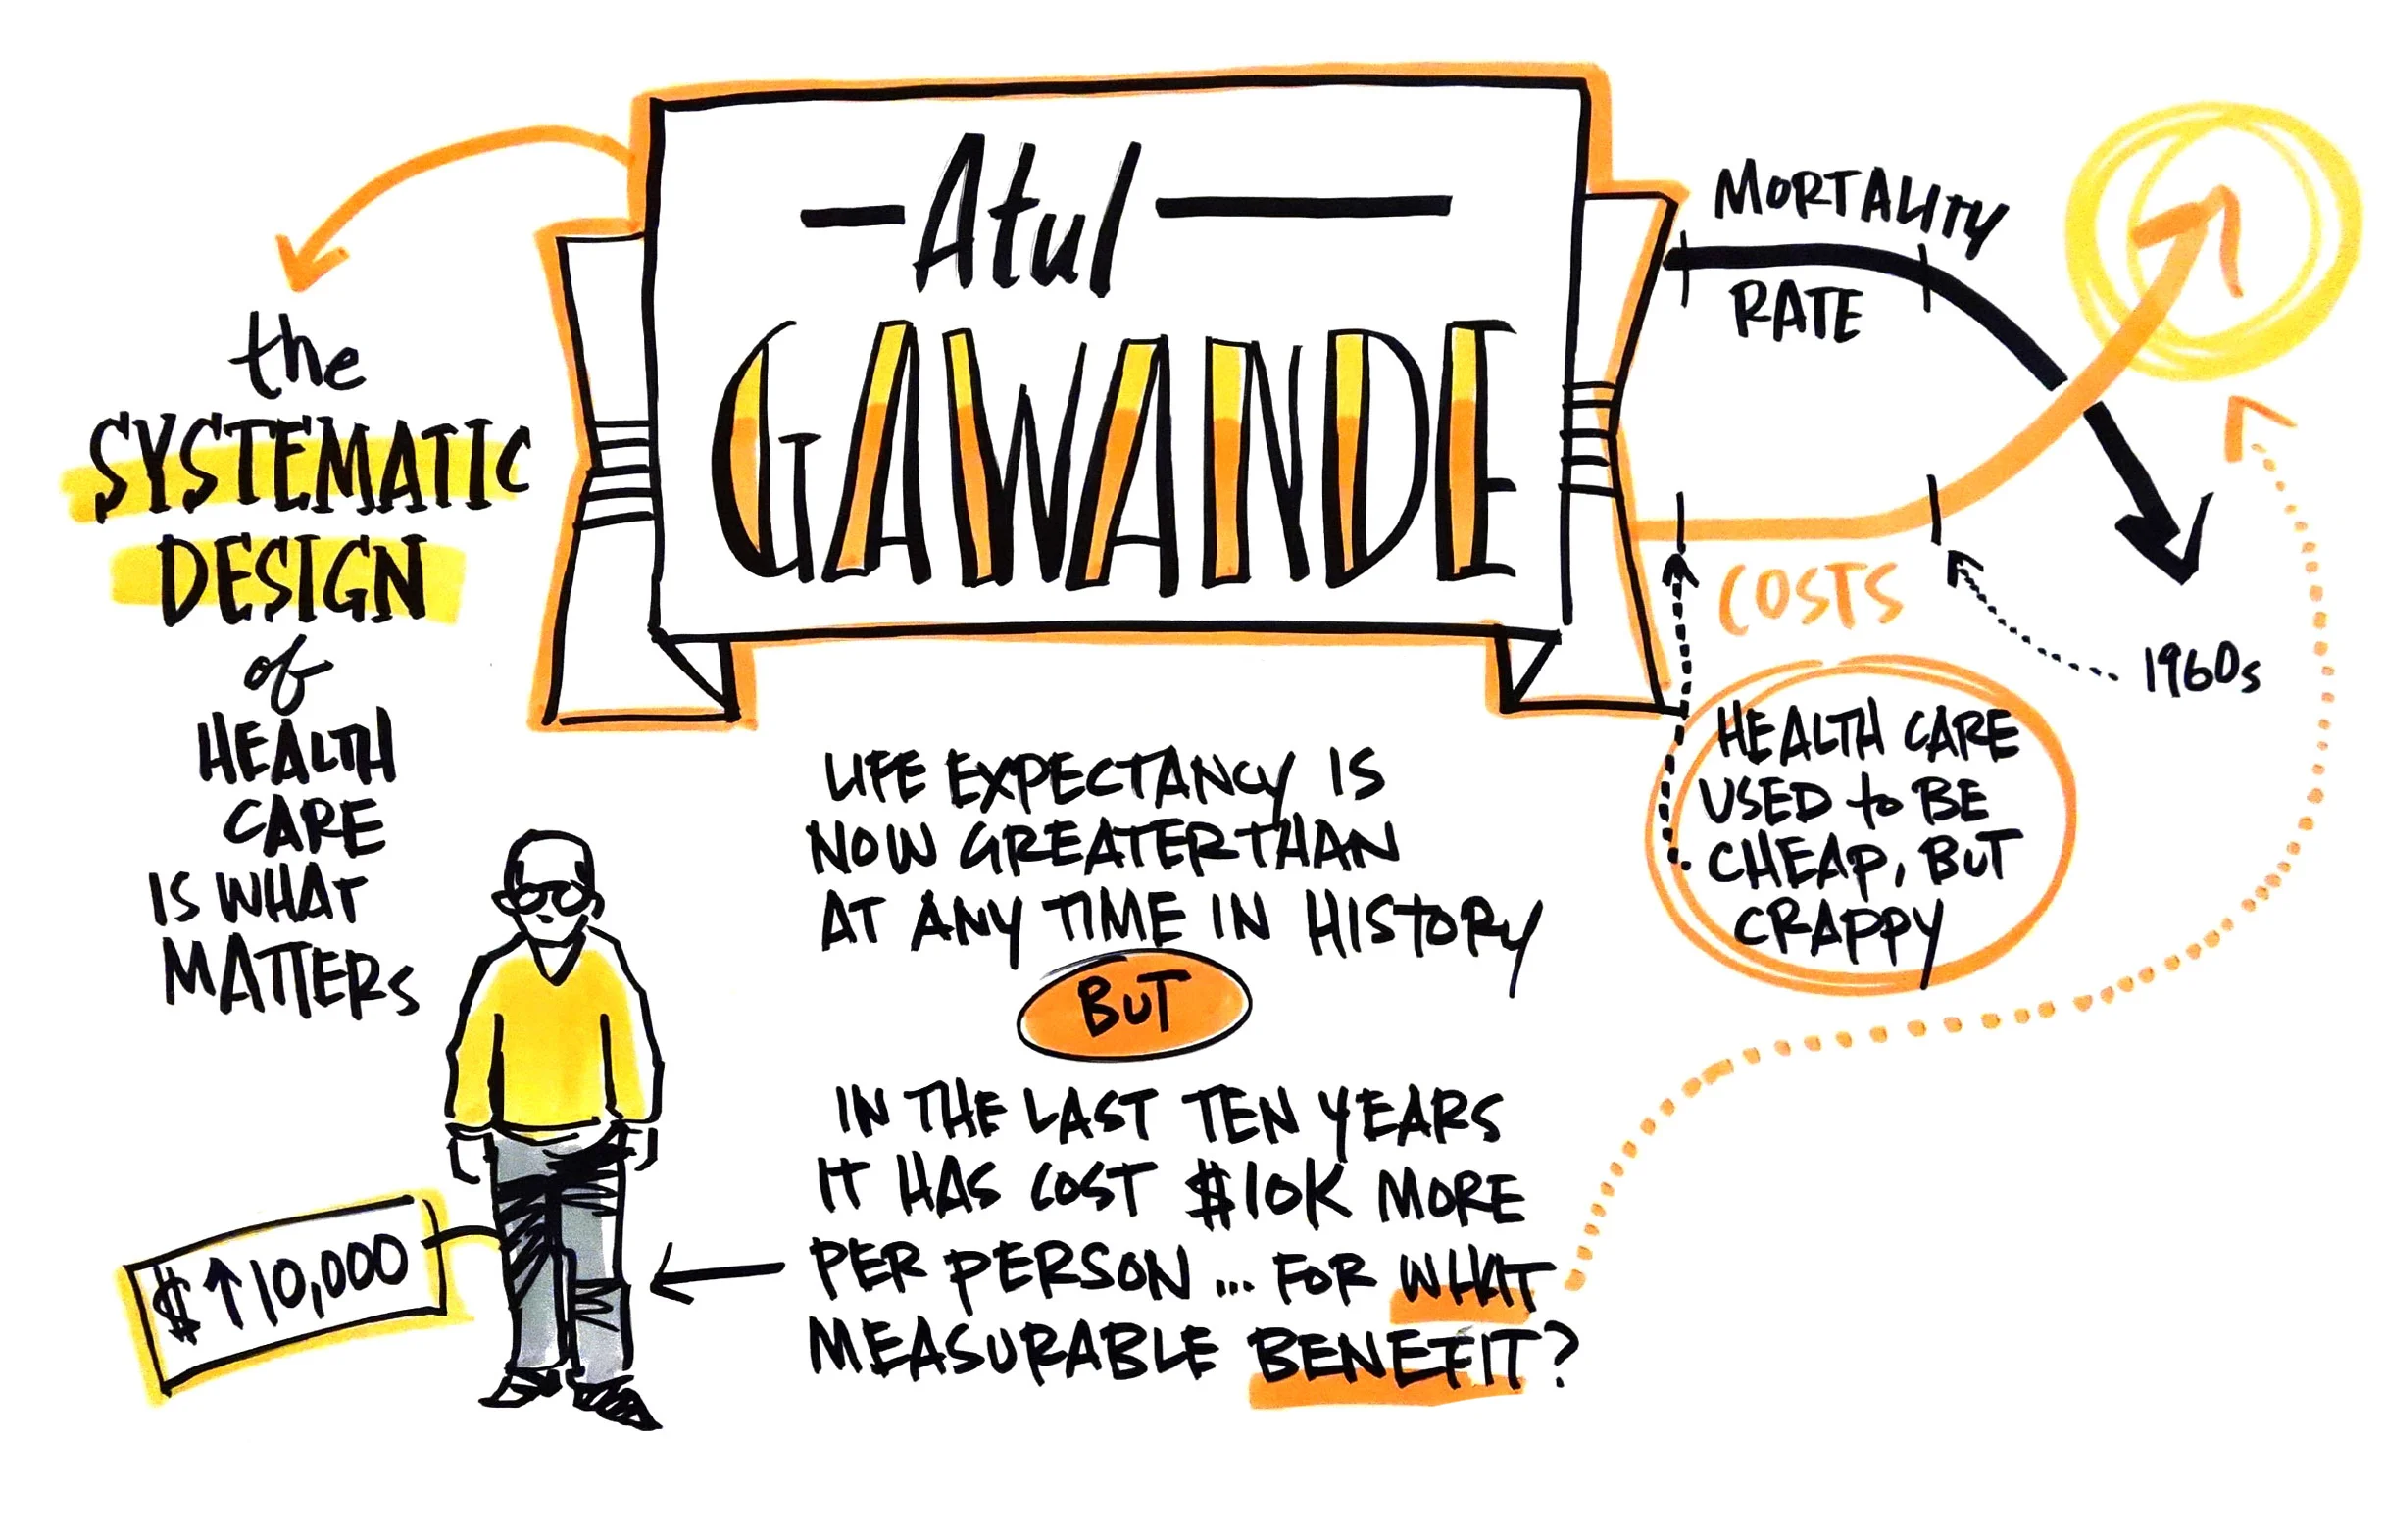 Atul
GAWANDE
the
SYSTEMATIC
DESIGN
of
HEALTH
CARE
IS WHAT
MATTERS
MORTALITY
RATE
COSTS
1960s
HEALTH CARE
USED to BE
CHEAP, BUT
CRAPPY
LIFE EXPECTANCY IS
NOW GREATER THAN
AT ANY TIME IN HISTORY
BUT
IN THE LAST TEN YEARS
IT HAS COST $10K MORE
PER PERSON ... FOR WHAT
MEASURABLE BENEFIT?
$↑10,000